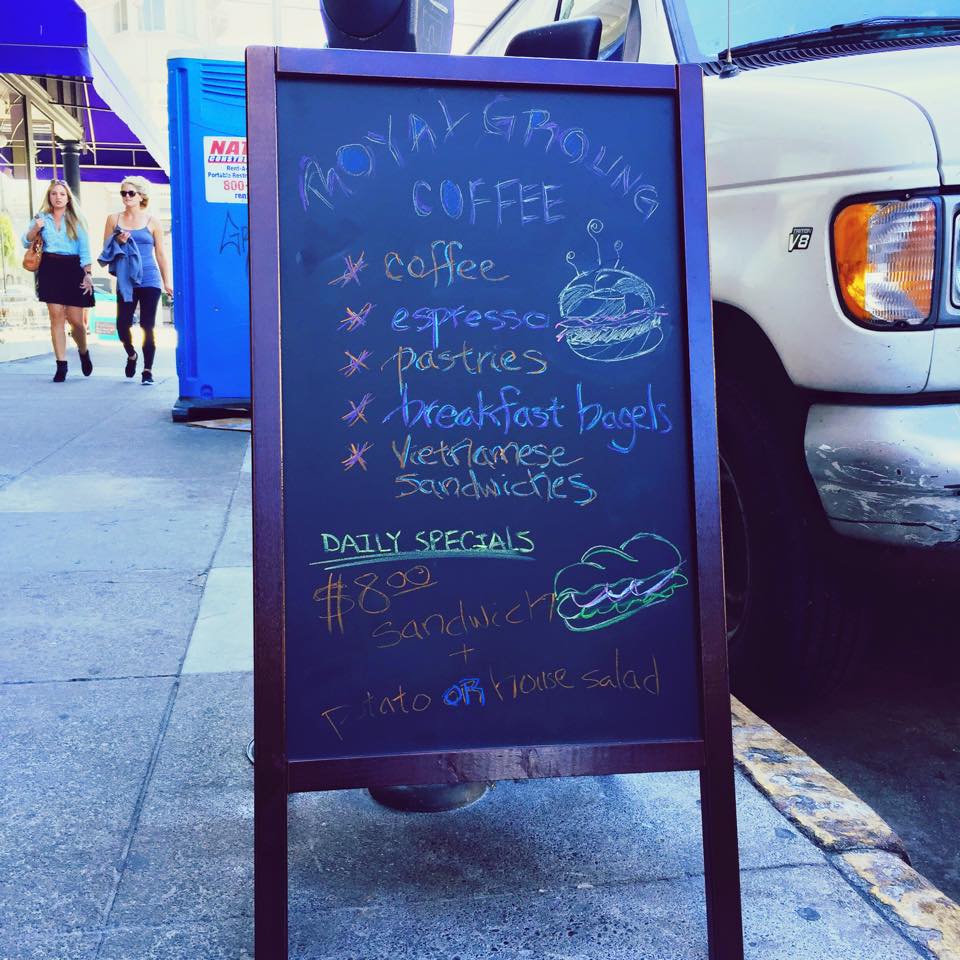 ROYAL GROUNG
COFFEE
* coffee
* espresso
* pastries
* breakfast bagels
* Vietnamese
sandwiches
DAILY SPECIALS
$8.00
sandwich
+
potato OR house salad
NAT
800-
V8